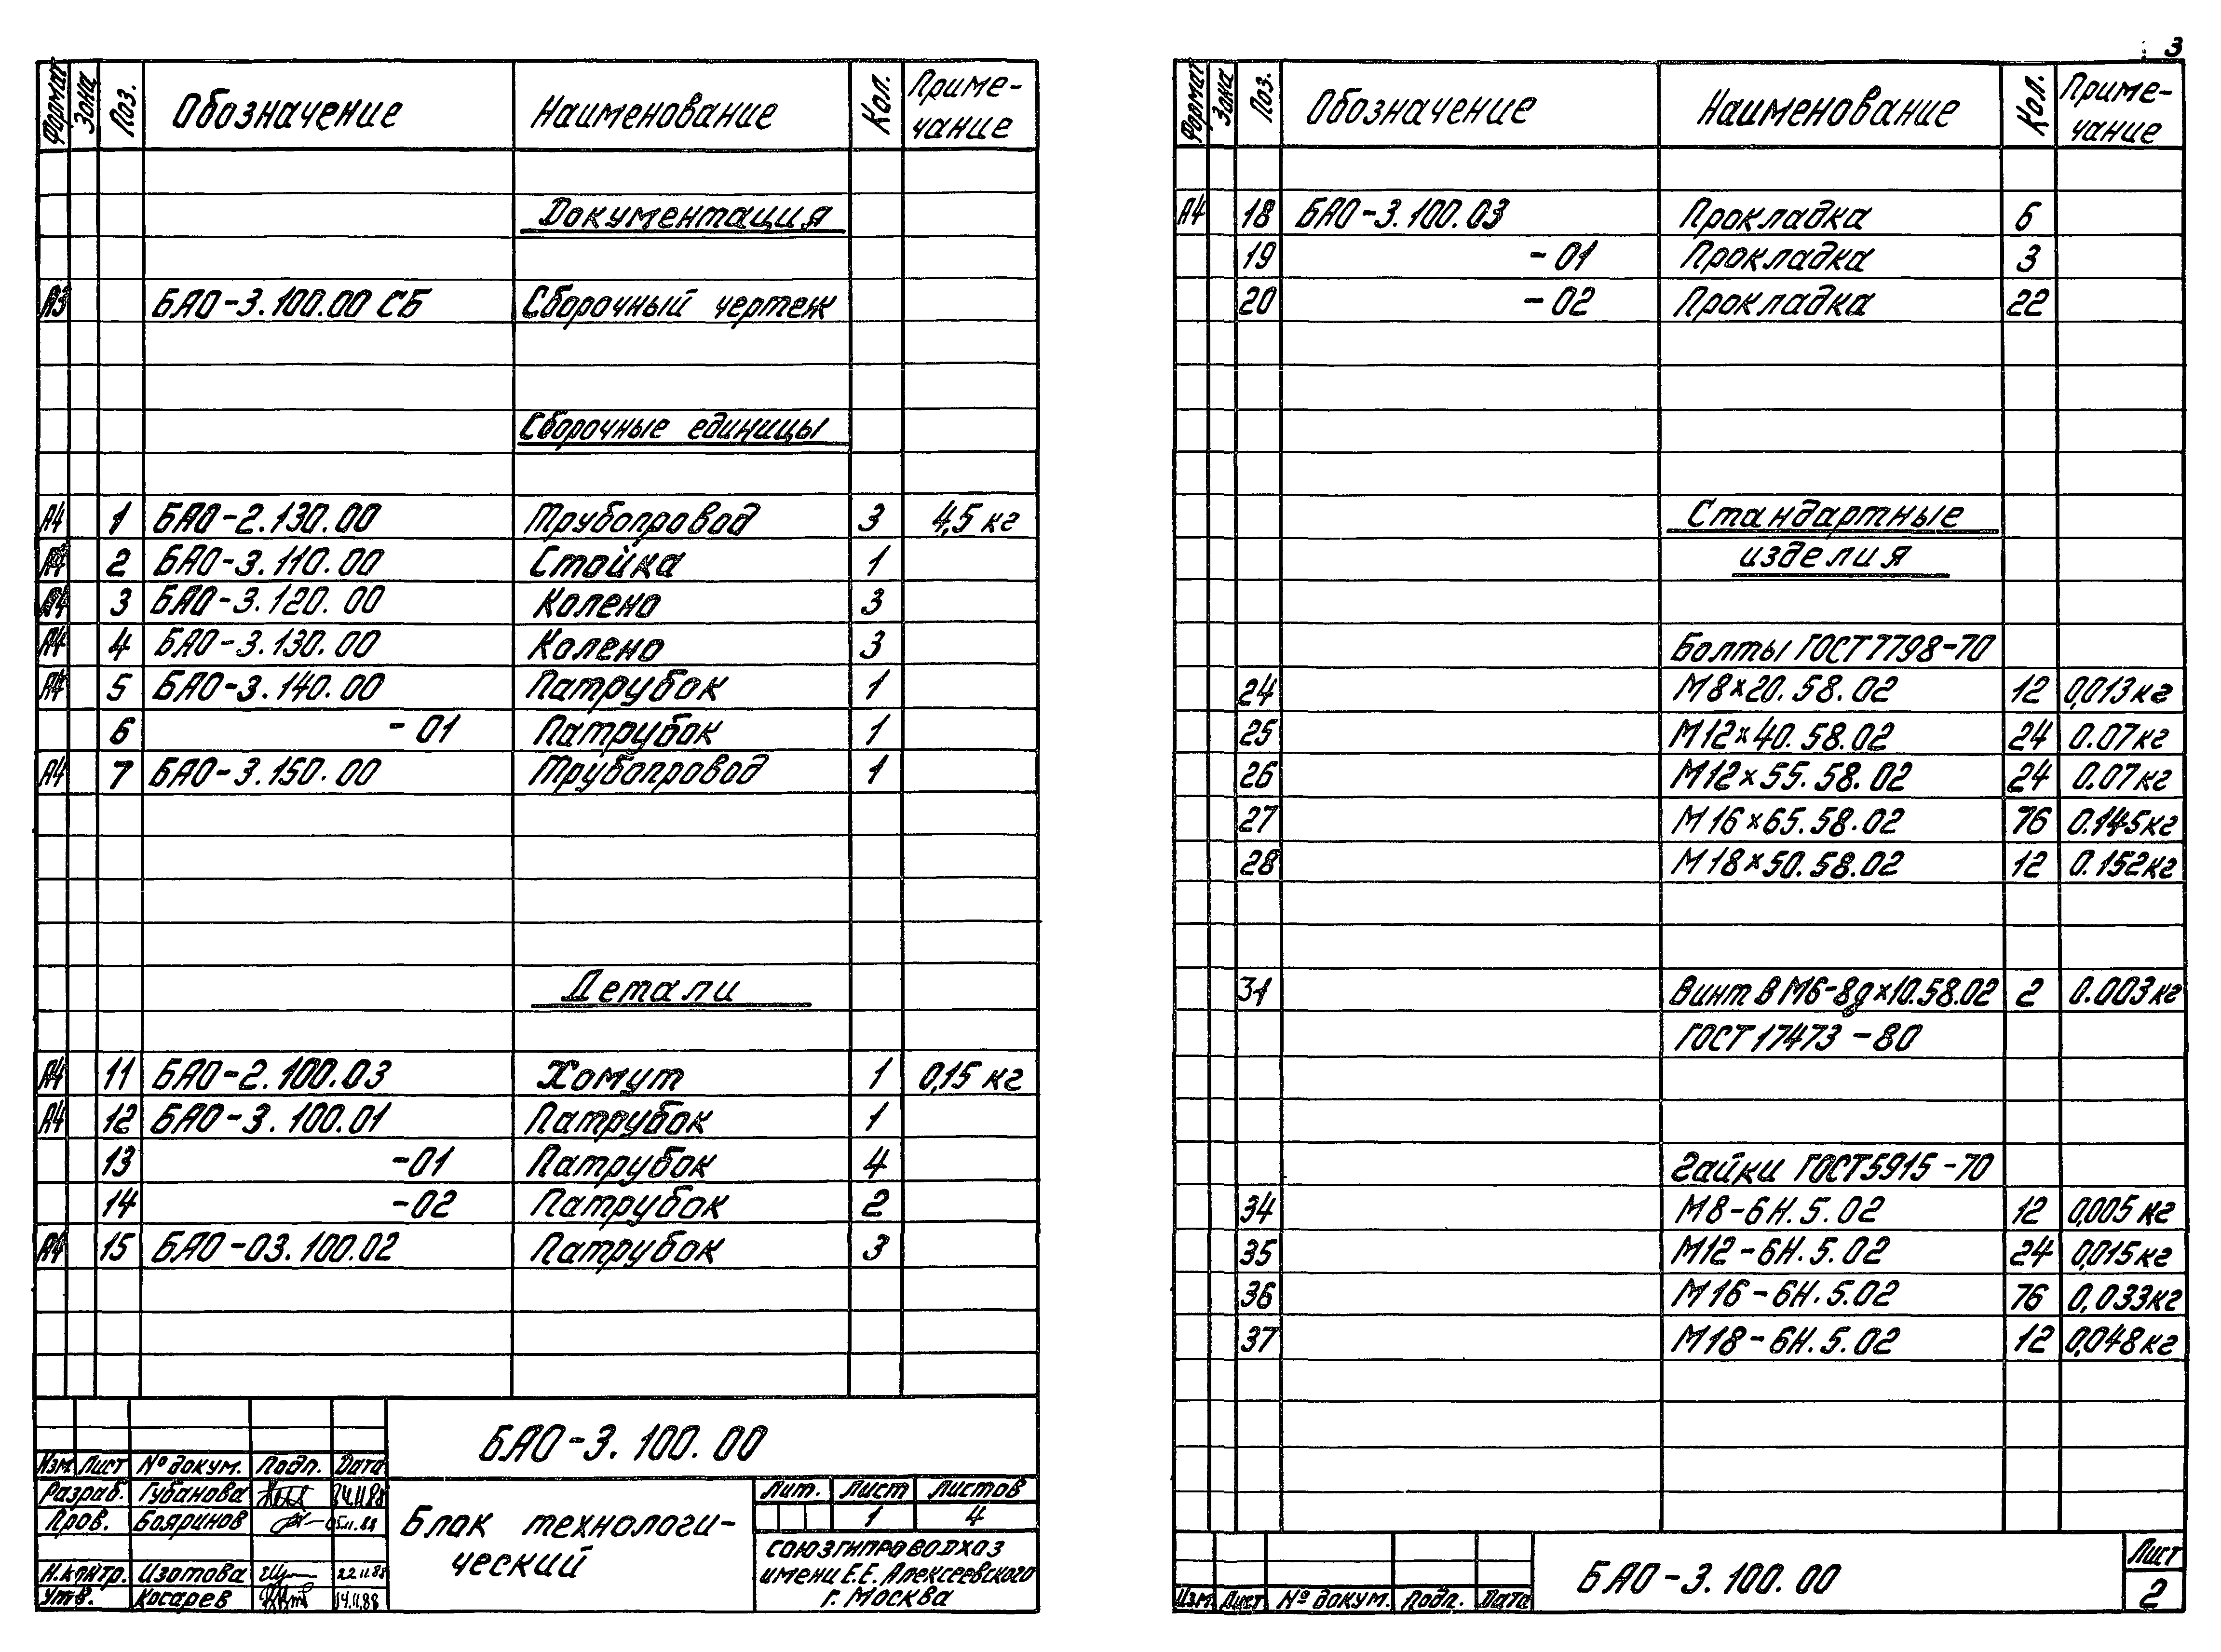 Формат Зона Поз. Обозначение Наименование Кол. Приме-
чание
Документация
А3 БАО-3.100.00 СБ Сборочный чертеж
Сборочные единицы
А4 1 БАО-2.130.00 Трубопровод 3 4,5 кг
А4 2 БАО-3.110.00 Стойка 1
А4 3 БАО-3.120.00 Колено 3
А4 4 БАО-3.130.00 Колено 3
А4 5 БАО-3.140.00 Патрубок 1
6 -01 Патрубок 1
А4 7 БАО-3.150.00 Трубопровод 1
Детали
А4 11 БАО-2.100.03 Хомут 1 0,15 кг
А4 12 БАО-3.100.01 Патрубок 1
13 -01 Патрубок 4
14 -02 Патрубок 2
А4 15 БАО-03.100.02 Патрубок 3
БАО-3.100.00
Изм Лист № докум. Подп. Дата
Разраб. Губанова 24.11.88
Пров. Бояринов
Н.контр. Изотова 22.11.88
Утв. Косарев 14.11.88
Блок технологи-
ческий
Лит. Лист Листов
1 4
СОЮЗГИПРОВОДХОЗ
имени Е.Е. Алексеевского
г. Москва
3
Формат Зона Поз. Обозначение Наименование Кол. Приме-
чание
А4 18 БАО-3.100.03 Прокладка 6
19 -01 Прокладка 3
20 -02 Прокладка 22
Стандартные
изделия
Болты ГОСТ 7798-70
24 М8×20.58.02 12 0,013 кг
25 М12×40.58.02 24 0.07 кг
26 М12×55.58.02 24 0.07 кг
27 М16×65.58.02 76 0.145 кг
28 М18×50.58.02 12 0.152 кг
31 Винт В М6-8g×10.58.02 2 0.003 кг
ГОСТ 17473-80
Гайки ГОСТ 5915-70
34 М8-6Н.5.02 12 0,005 кг
35 М12-6Н.5.02 24 0,015 кг
36 М16-6Н.5.02 76 0,033 кг
37 М18-6Н.5.02 12 0,048 кг
Изм Лист № докум. Подп. Дата
БАО-3.100.00
Лист
2